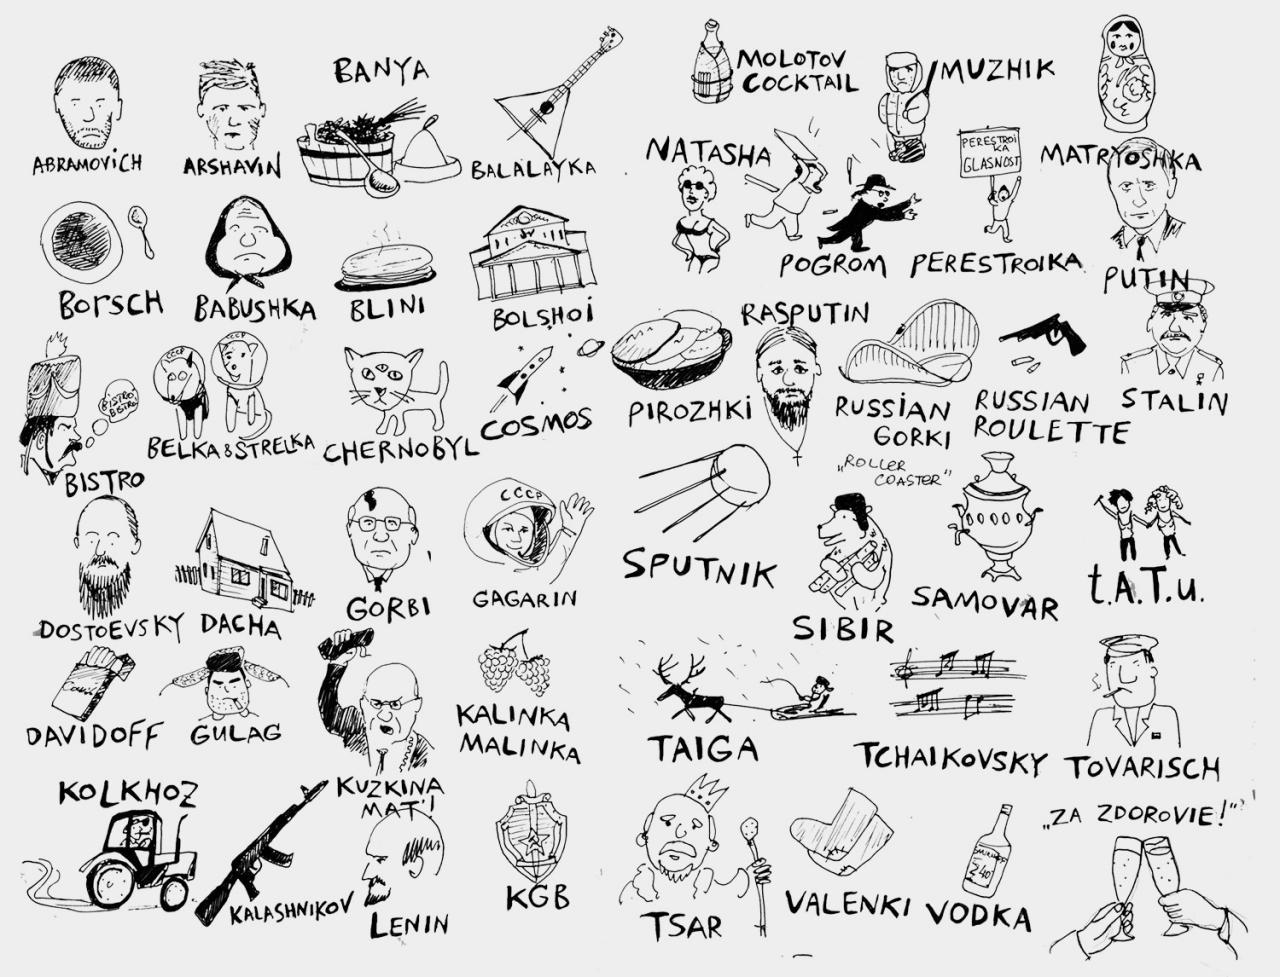 ABRAMOVICH
ARSHAVIN
BANYA
BALALAYKA
BORSCH
BABUSHKA
BLINI
BOLSHOI
BISTRO
BISTRO
BISTRO
CCCP
CCCP
BELKA & STRELKA
CHERNOBYL
COSMOS
DOSTOEVSKY
DACHA
GORBI
CCCP
GAGARIN
DAVIDOFF
GULAG
KUZKINA
MAT'!
KALINKA
MALINKA
KOLKHOZ
KALASHNIKOV
LENIN
KGB
MOLOTOV
COCKTAIL
MUZHIK
MATRYOSHKA
NATASHA
POGROM
PERESTROI
KA
GLASNOST
PERESTROIKA
PUTIN
PIROZHKI
RASPUTIN
RUSSIAN
GORKI
„ROLLER
COASTER"
RUSSIAN
ROULETTE
STALIN
SPUTNIK
SIBIR
SAMOVAR
t.A.T.u.
TAIGA
TCHAIKOVSKY
TOVARISCH
TSAR
VALENKI
VODKA
40°
„ZA ZDOROVIE!"